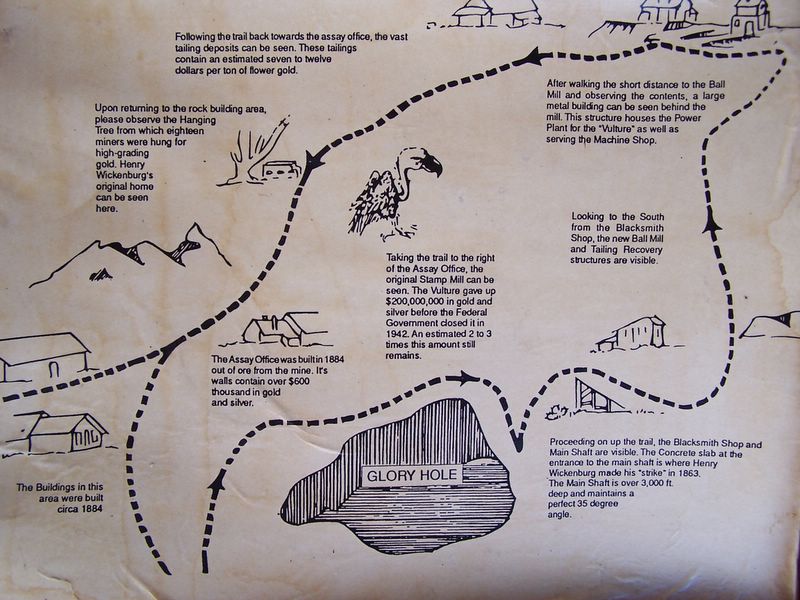 Following the trail back towards the assay office, the vast
tailing deposits can be seen. These tailings
contain an estimated seven to twelve
dollars per ton of flower gold.
After walking the short distance to the Ball
Mill and observing the contents, a large
metal building can be seen behind the
mill. This structure houses the Power
Plant for the "Vulture" as well as
serving the Machine Shop.
Upon returning to the rock building area,
please observe the Hanging
Tree from which eighteen
miners were hung for
high-grading
gold. Henry
Wickenburg's
original home
can be seen
here.
Looking to the South
from the Blacksmith
Shop, the new Ball Mill
and Tailing Recovery
structures are visible.
Taking the trail to the right
of the Assay Office, the
original Stamp Mill can be
seen. The Vulture gave up
$200,000,000 in gold and
silver before the Federal
Government closed it in
1942. An estimated 2 to 3
times this amount still
remains.
The Assay Office was built in 1884
out of ore from the mine. It's
walls contain over $600
thousand in gold
and silver.
Proceeding on up the trail, the Blacksmith Shop and
Main Shaft are visible. The Concrete slab at the
entrance to the main shaft is where Henry
Wickenburg made his "strike" in 1863.
The Main Shaft is over 3,000 ft.
deep and maintains a
perfect 35 degree
angle.
GLORY HOLE
The Buildings in this
area were built
circa 1884